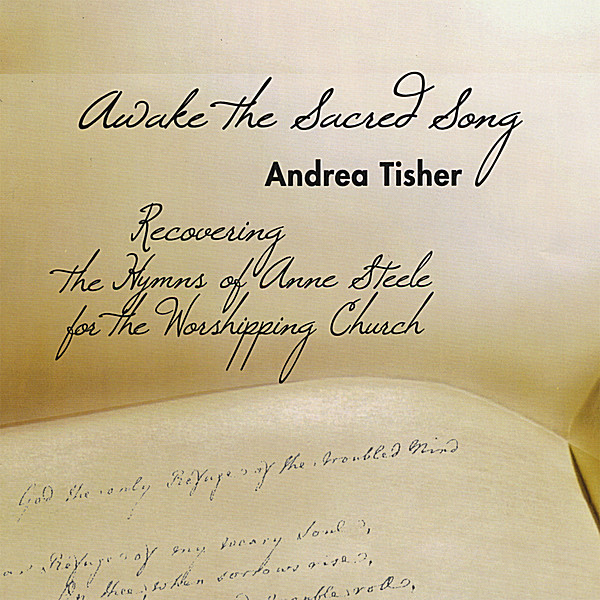 Awake the Sacred Song
Andrea Tisher
Recovering
the Hymns of Anne Steele
for the Worshipping Church
God the only Refuge of the troubled Mind
Refuge of my weary Soul,
On thee, when sorrows rise,
trouble roll,